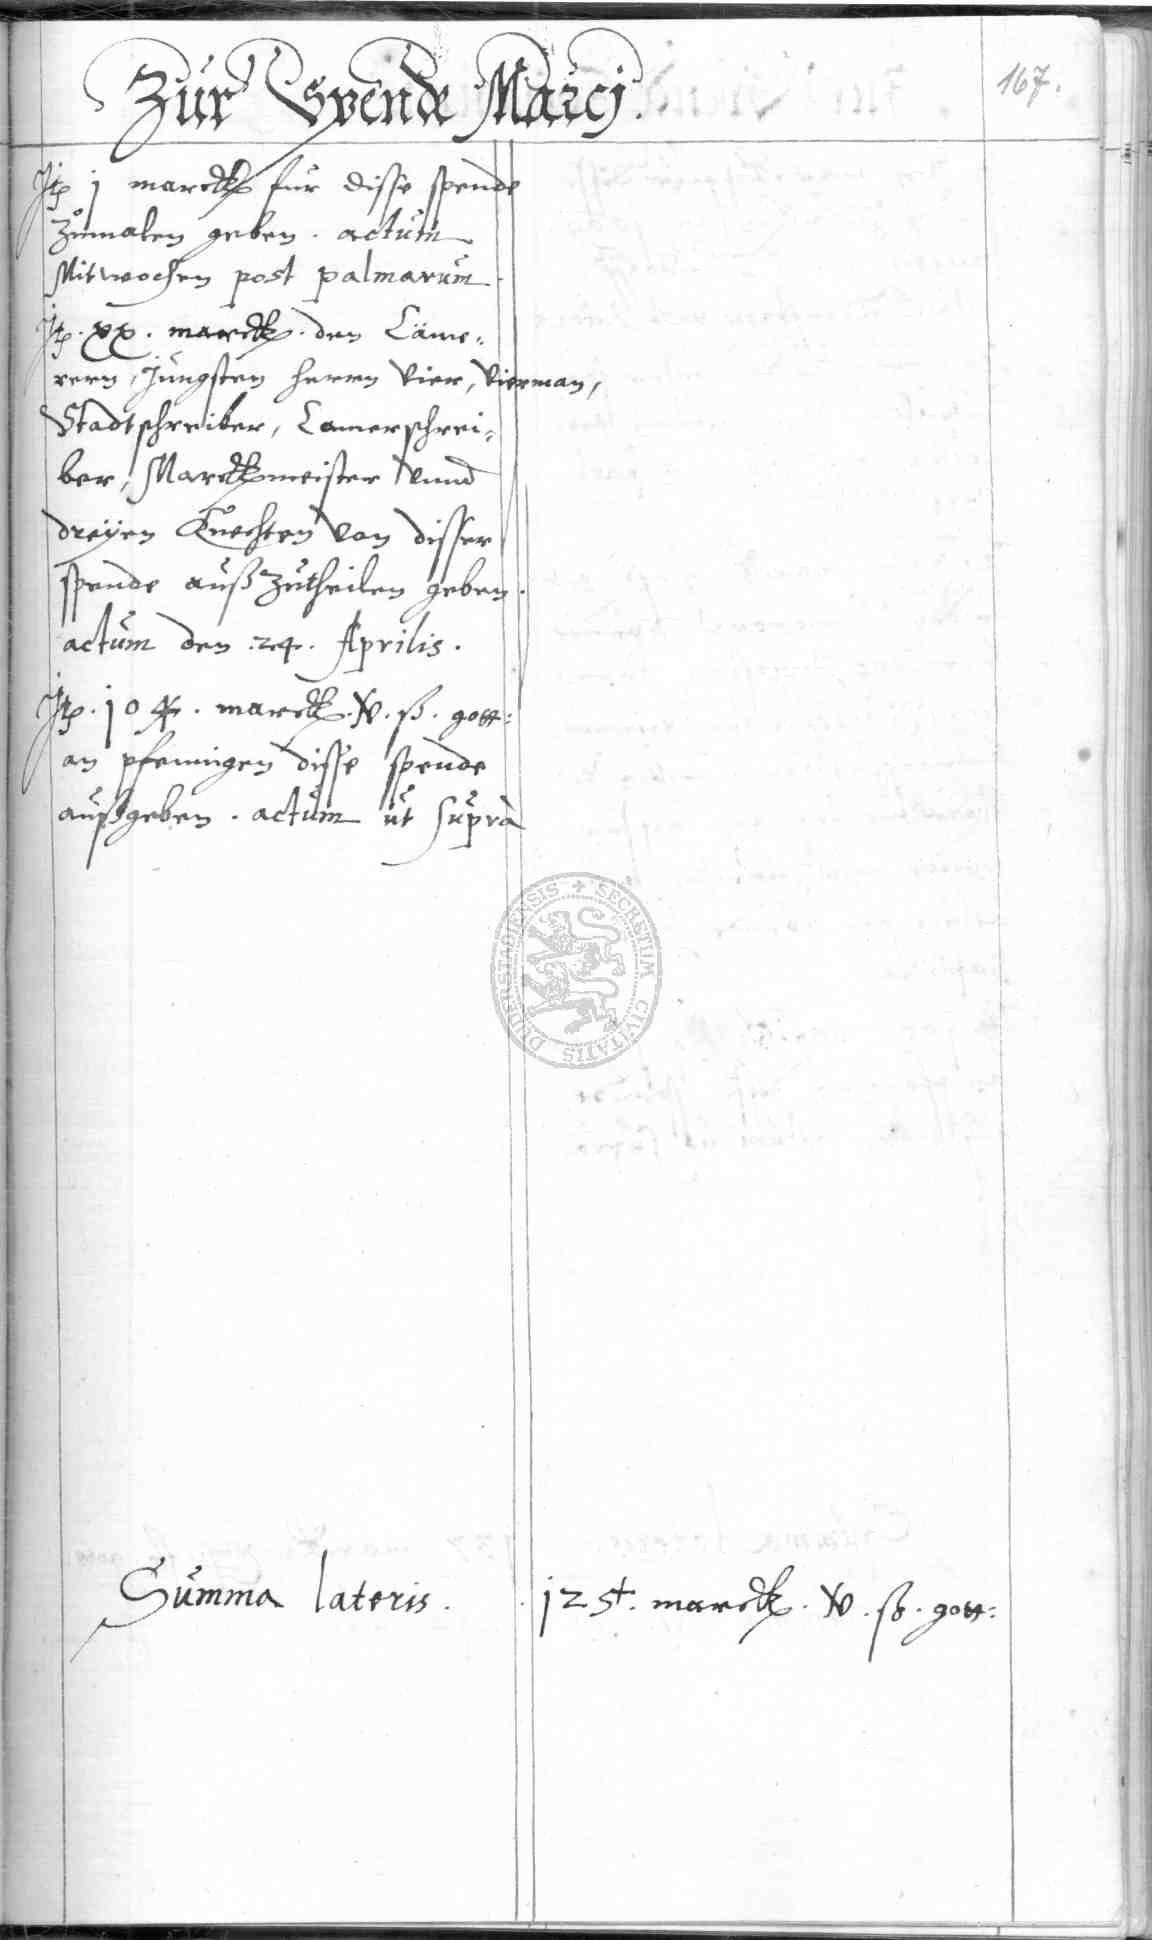 Zur Spende Marcj.
167.
Jt. j marck fur disse spende
zumalen geben . actum
Mitwochen post palmarum
Jt. xx. marck. den Cäme-
rern, Jungsten herrn Vier, Vierman,
Stadtschreiber, Camerschrei-
ber, Marckmeister Vnnd
dreyen Knechten Von disser
spende außzutheilen geben.
actum den .24. Aprilis.
Jt. 104. marck. xv. ß. gott:
an pfennigen disse spende
außgeben . actum ut suprà
SECRETUM CIVITATIS DUDERSTADIENSIS
Summa lateris . 125. marck. xv. ß. gott: